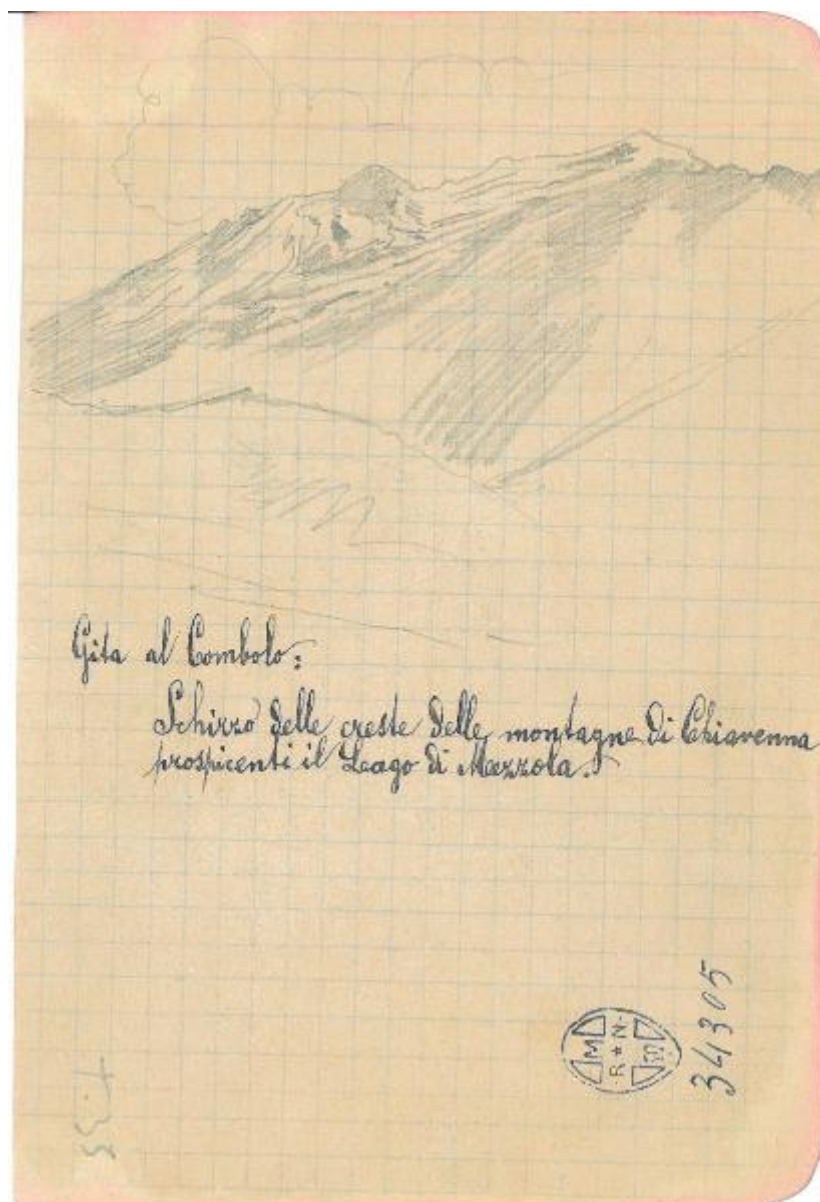 Gita al Combolo:
Schizzo delle creste delle montagne di Chiavenna
prospicenti il Lago di Mezzola.
M
R*N
34305
T.33